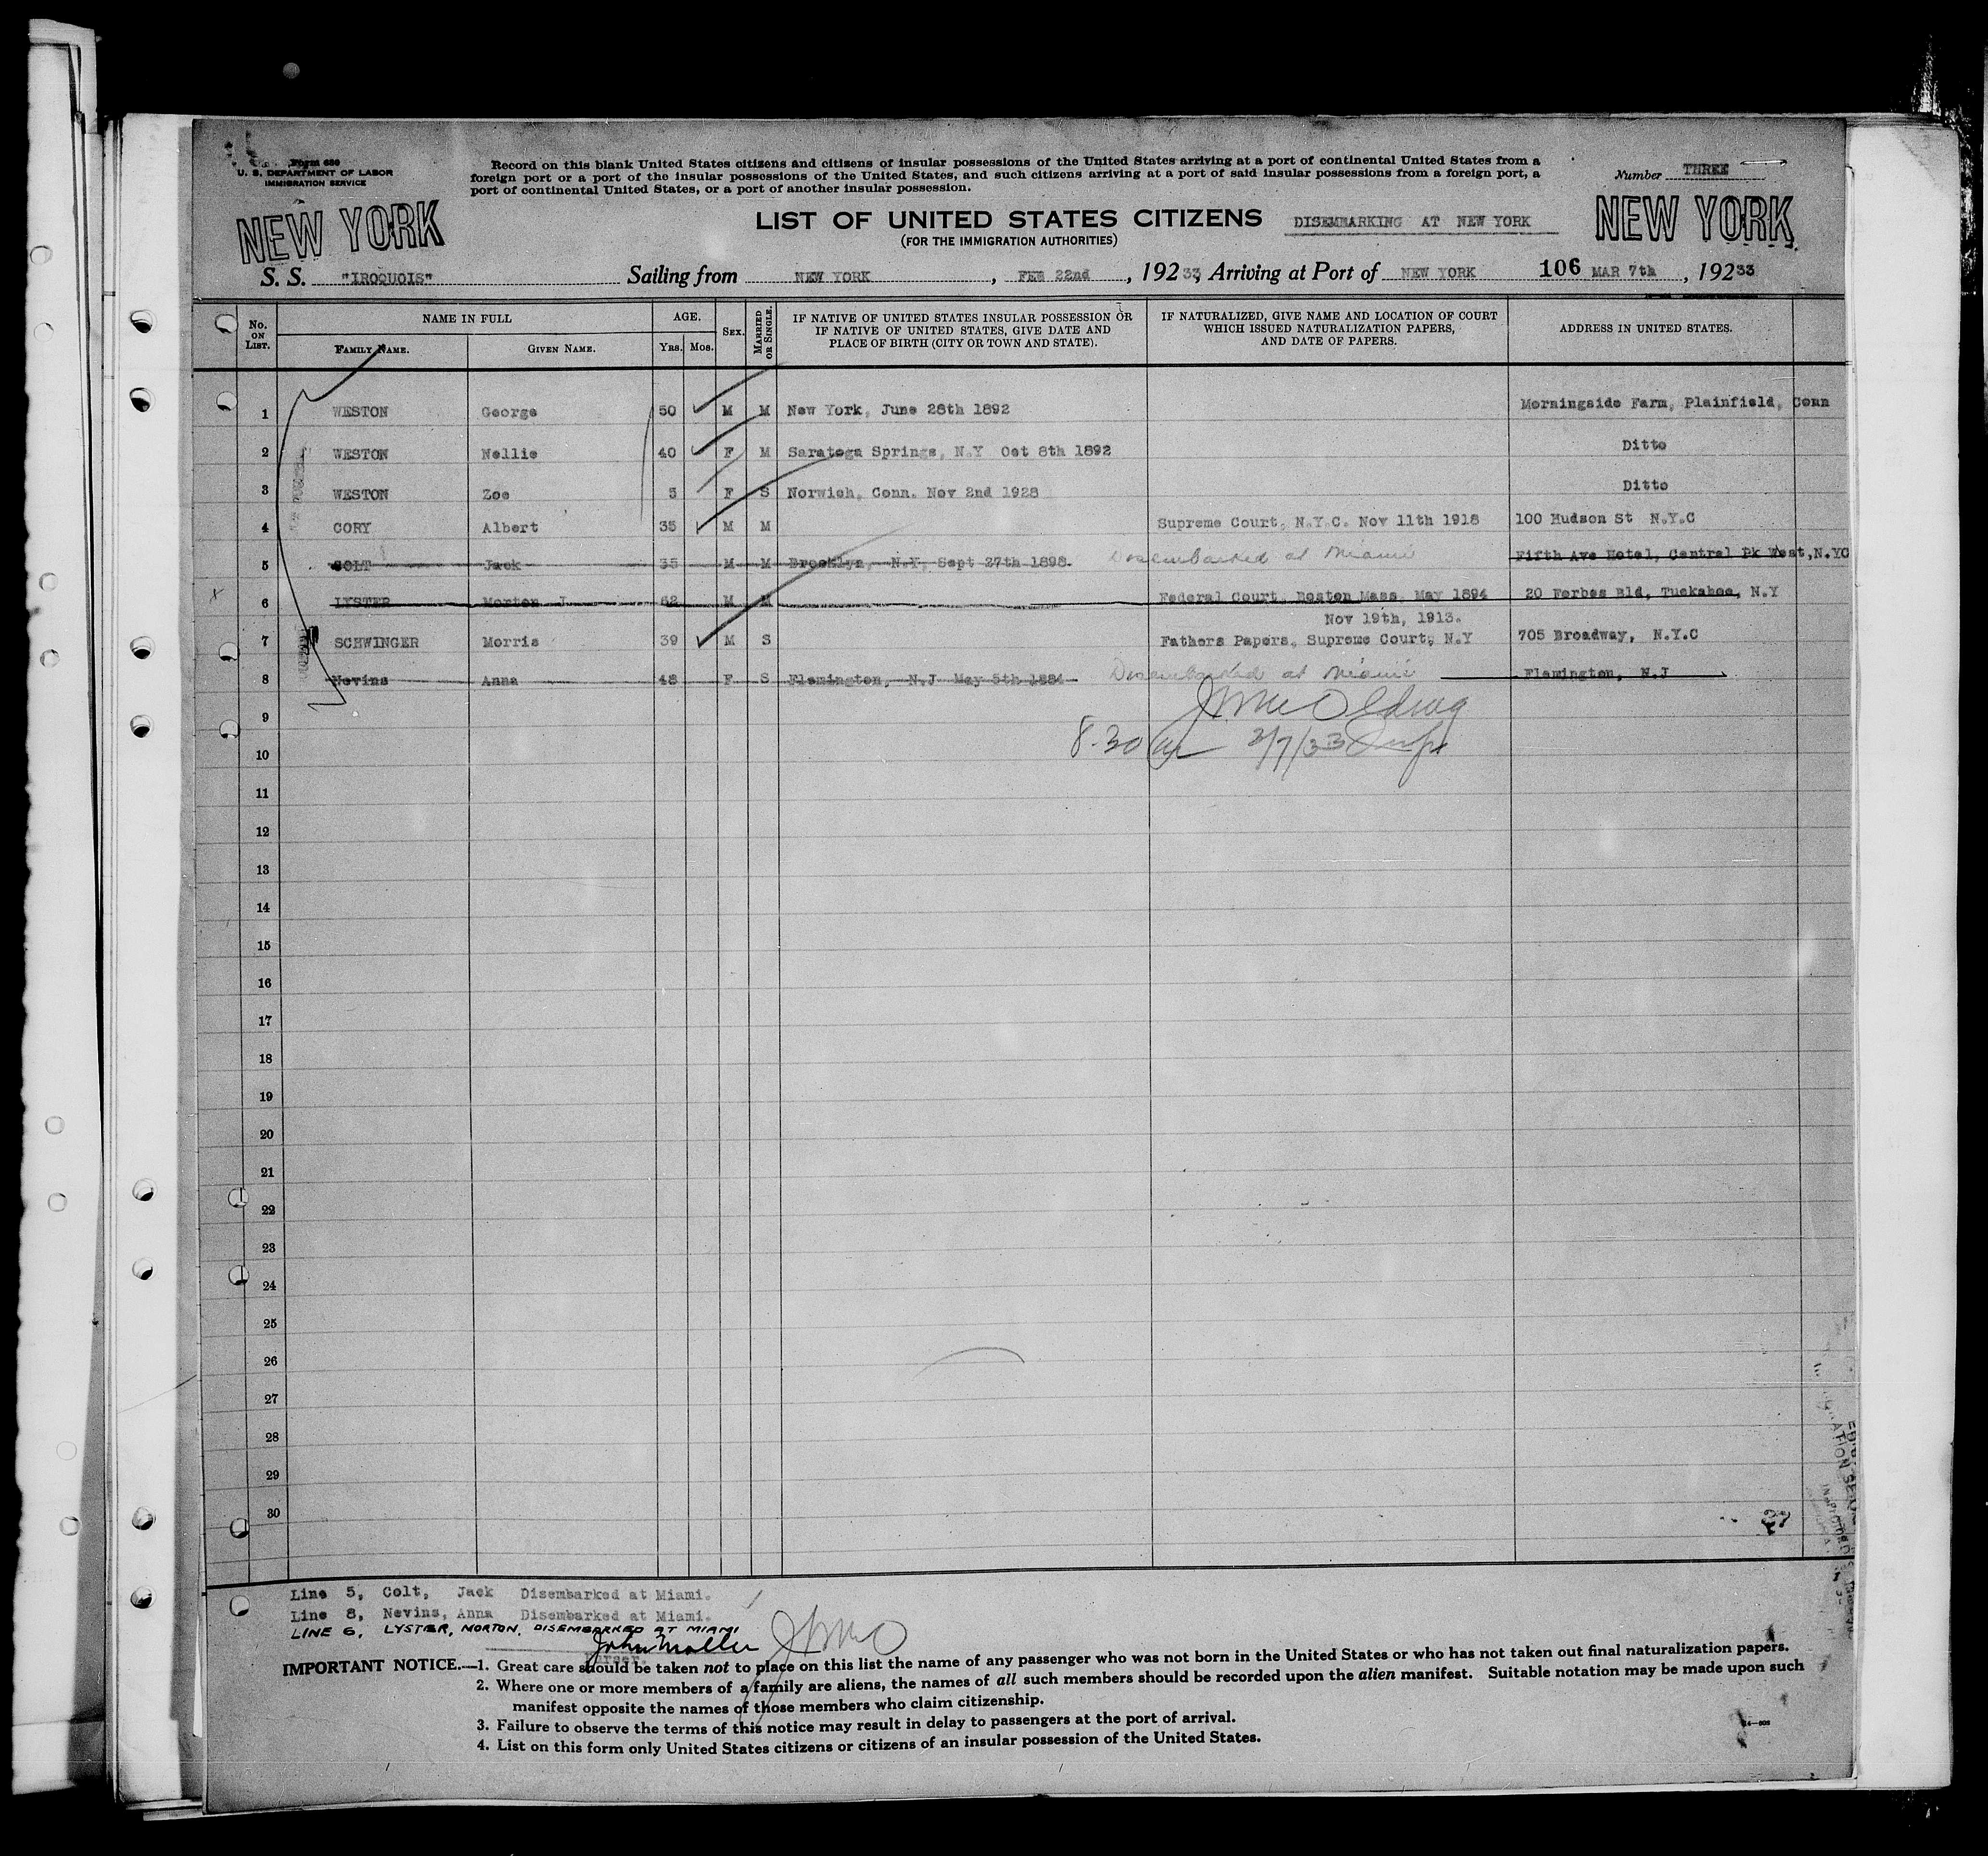 Form 630
U. S. DEPARTMENT OF LABOR
IMMIGRATION SERVICE
Record on this blank United States citizens and citizens of insular possessions of the United States arriving at a port of continental United States from a
foreign port or a port of the insular possessions of the United States, and such citizens arriving at a port of said insular possessions from a foreign port, a
port of continental United States, or a port of another insular possession.
Number THREE
NEW YORK
LIST OF UNITED STATES CITIZENS DISEMBARKING AT NEW YORK
NEW YORK
(FOR THE IMMIGRATION AUTHORITIES)
S. S. "IROQUOIS" Sailing from NEW YORK, FEB 22nd, 19233, Arriving at Port of NEW YORK 106 MAR 7th, 19233
No. ON LIST. NAME IN FULL AGE. SEX. MARRIED OR SINGLE. IF NATIVE OF UNITED STATES INSULAR POSSESSION OR IF NATIVE OF UNITED STATES, GIVE DATE AND PLACE OF BIRTH (CITY OR TOWN AND STATE). IF NATURALIZED, GIVE NAME AND LOCATION OF COURT WHICH ISSUED NATURALIZATION PAPERS, AND DATE OF PAPERS. ADDRESS IN UNITED STATES.
FAMILY NAME. GIVEN NAME. YRS. MOS.
1 WESTON George 50 M M New York, June 28th 1892 Morningside Farm, Plainfield, Conn
2 WESTON Nellie 40 F M Saratoga Springs, N.Y Oct 8th 1892 Ditto
3 WESTON Zoe 5 F S Norwich, Conn. Nov 2nd 1928 Ditto
4 CORY Albert 35 M M Supreme Court, N.Y.C. Nov 11th 1918 100 Hudson St N.Y.C
5 COLT Jack 35 M M Brooklyn, N.Y, Sept 27th 1898. Disembarked at Miami Fifth Ave Hotel, Central Pk West, N.YC
6 LYSTER Morton J 62 M M Federal Court, Boston Mass, May 1894 20 Forbes Bld, Tuckahoe, N.Y
Nov 19th, 1913.
7 SCHWINGER Morris 39 M S Fathers Papers, Supreme Court, N.Y 705 Broadway, N.Y.C
8 Nevins Anna 48 F S Flemington, N.J May 5th 1884 Disembarked at Miami Flemington, N.J
9
8.30 3/7/33
10
11
12
13
14
15
16
17
18
19
20
21
22
23
24
25
26
27
28
29
30
Line 5, Colt, Jack Disembarked at Miami.
Line 8, Nevins, Anna Disembarked at Miami.
LINE 6, LYSTER, MORTON, DISEMBARKED AT MIAMI
John Moller
Purser.
IMPORTANT NOTICE.—1. Great care should be taken not to place on this list the name of any passenger who was not born in the United States or who has not taken out final naturalization papers.
2. Where one or more members of a family are aliens, the names of all such members should be recorded upon the alien manifest. Suitable notation may be made upon such
manifest opposite the names of those members who claim citizenship.
3. Failure to observe the terms of this notice may result in delay to passengers at the port of arrival.
4. List on this form only United States citizens or citizens of an insular possession of the United States.